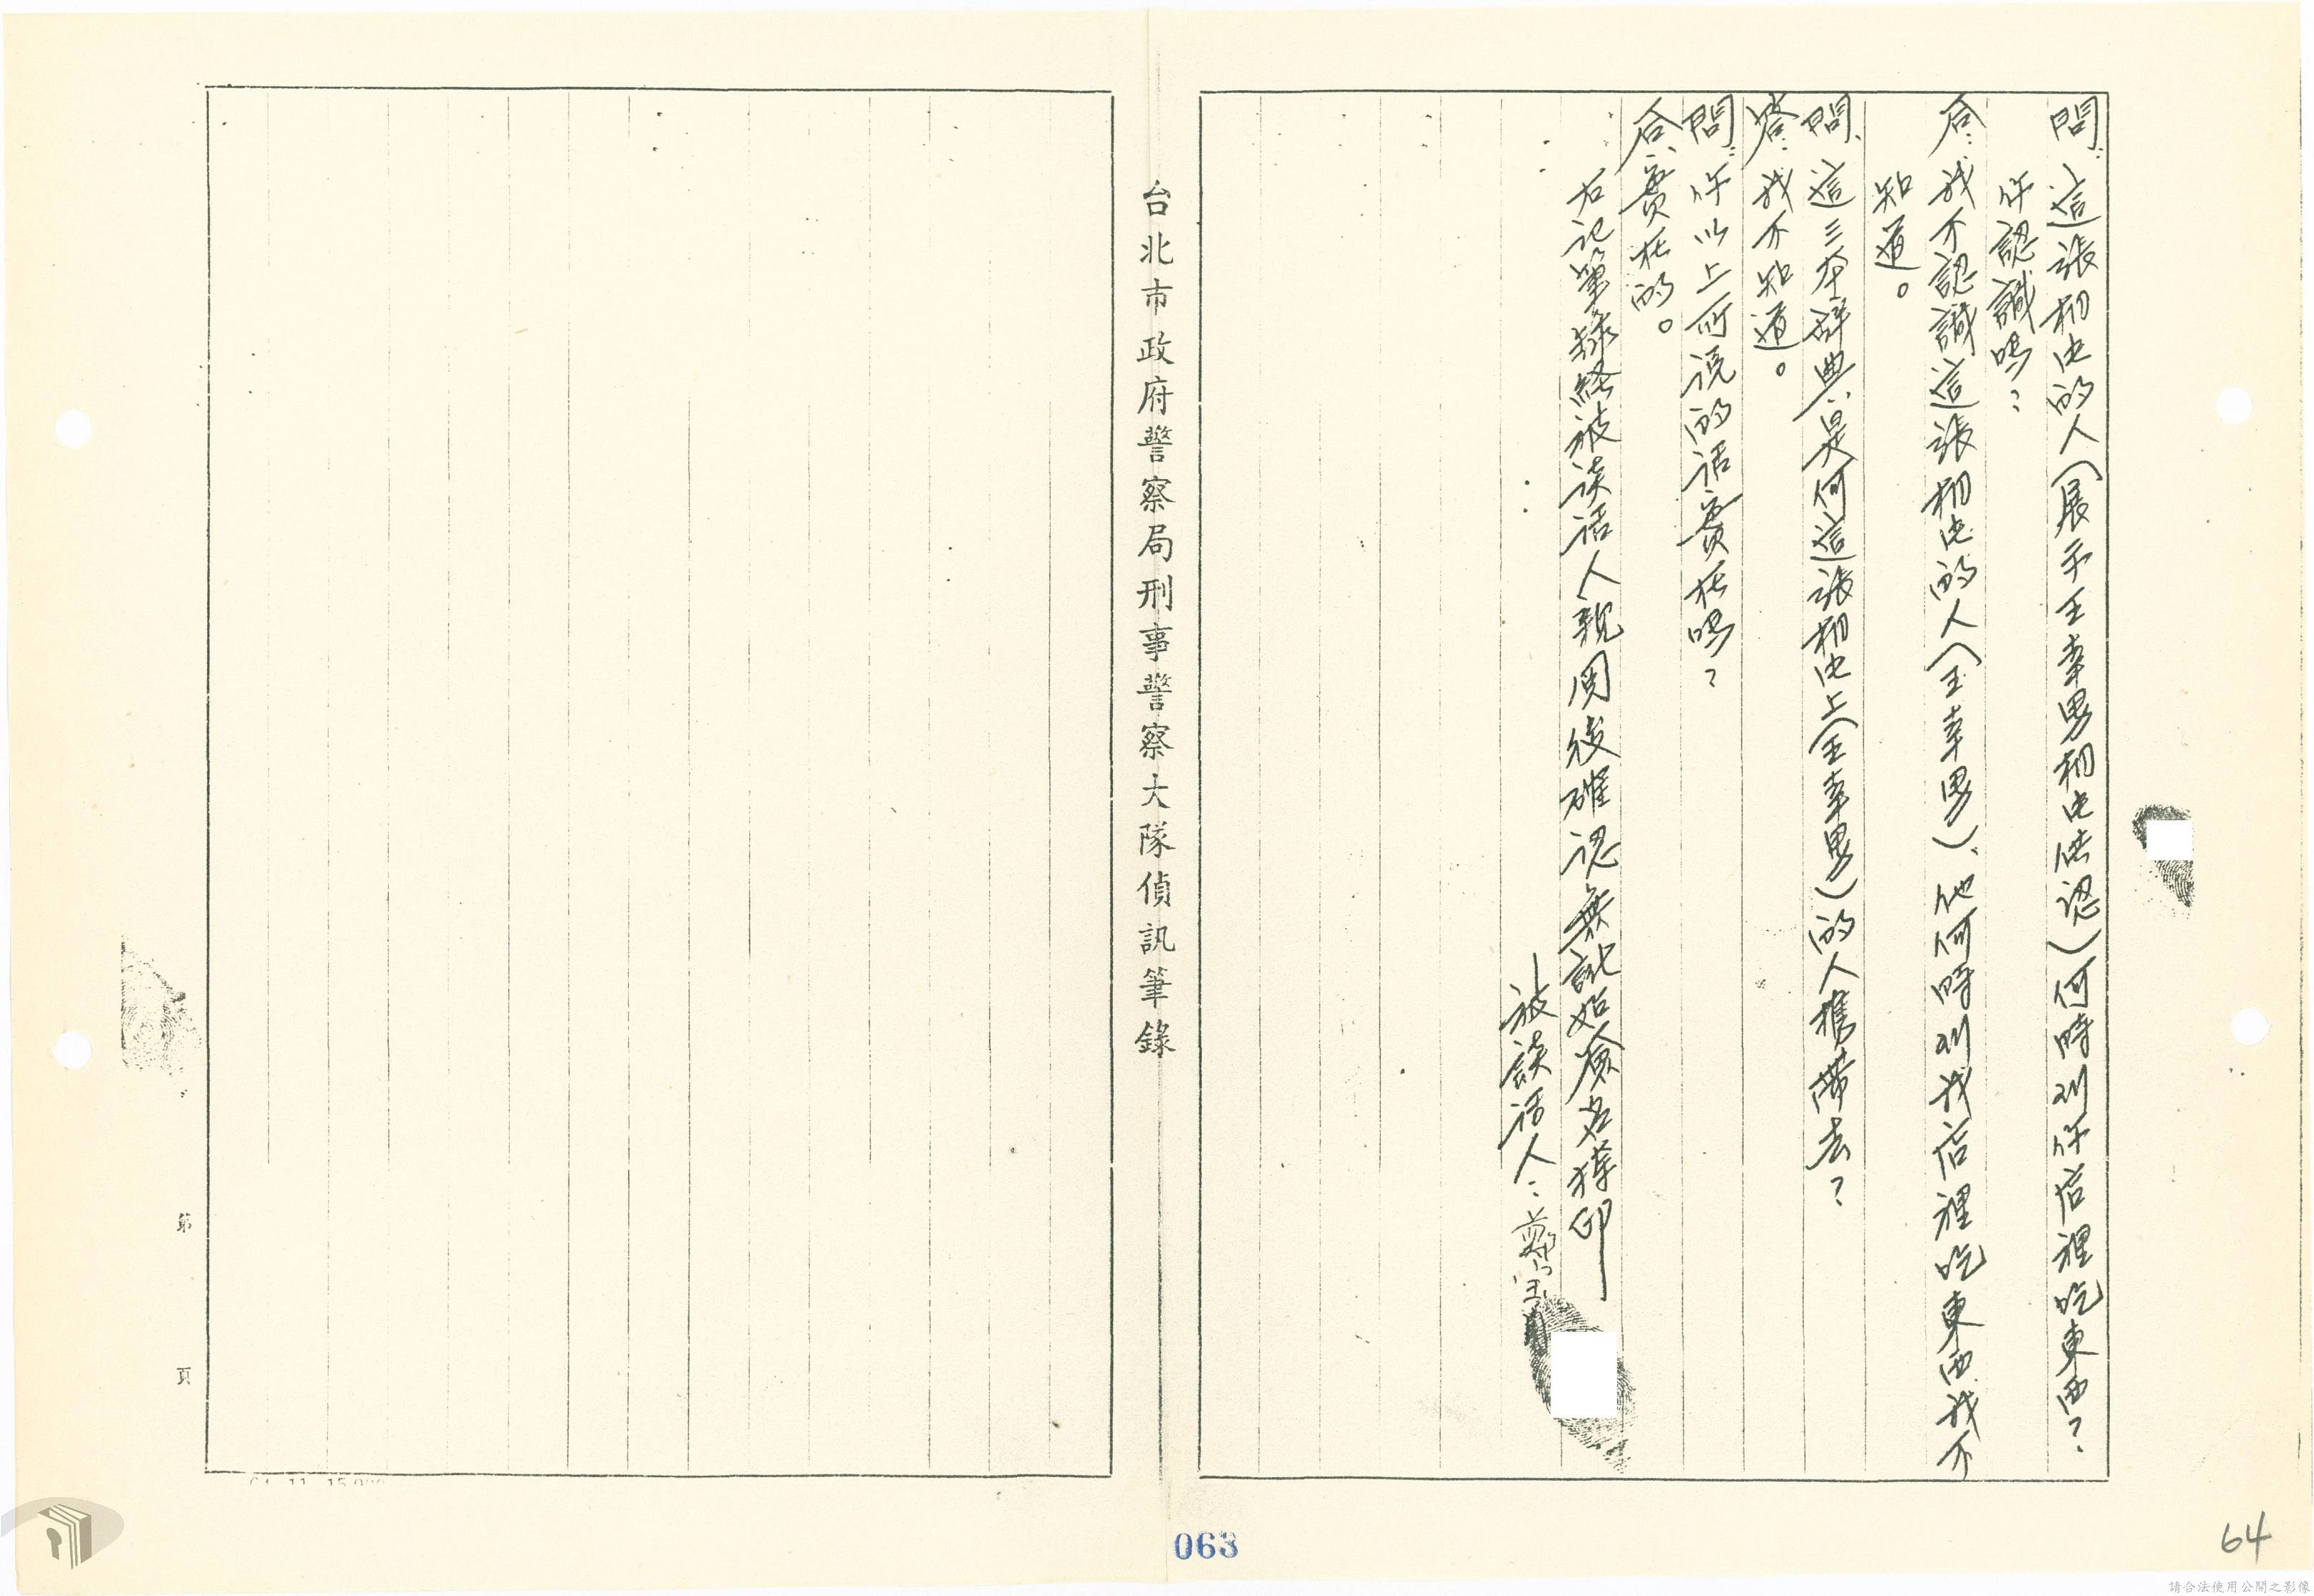 問:這張相片的人(展示王幸男相片供認)何時到你店裡吃東西?
你認識嗎?
答:我不認識這張相片的人(王幸男)、他何時到我店裡吃東西我不
知道。
問、這三本辭典、是何這張相片上(王幸男)的人攜帶去?
答:我不知道。
問:你以上所說的話實在嗎?
答:實在的。
右記筆錄經被談話人親閱後確認無訛始簽名捺印
被談話人:鄭
台北市政府警察局刑事警察大隊偵訊筆錄
第 頁
063
64
請合法使用公開之影像